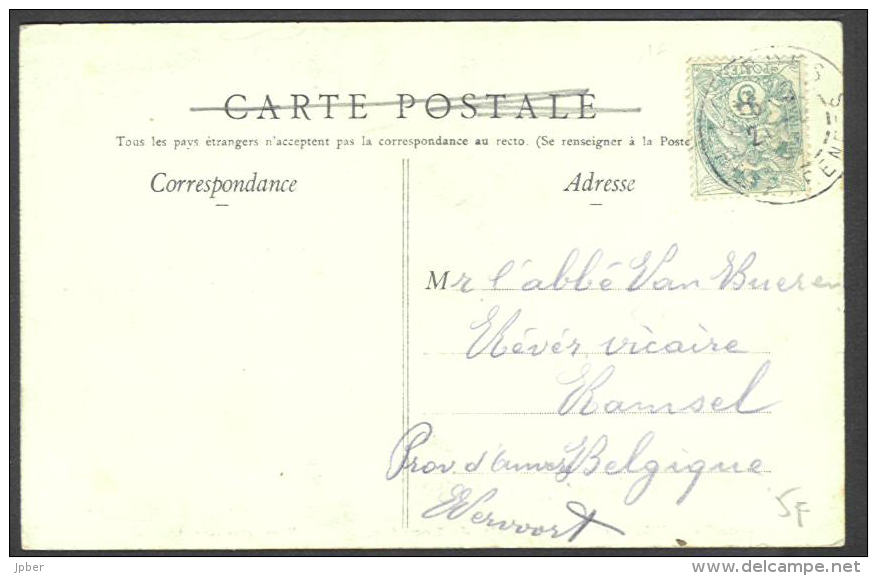 CARTE POSTALE
Tous les pays étrangers n'acceptent pas la correspondance au recto. (Se renseigner à la Poste
Correspondance
Adresse
POSTES
5
Mr l'abbé Van Bueren
Révér vicaire
Ramsel
Prov d'Anvers Belgique
Wervoort
5F
Jpber
www.delcampe.net